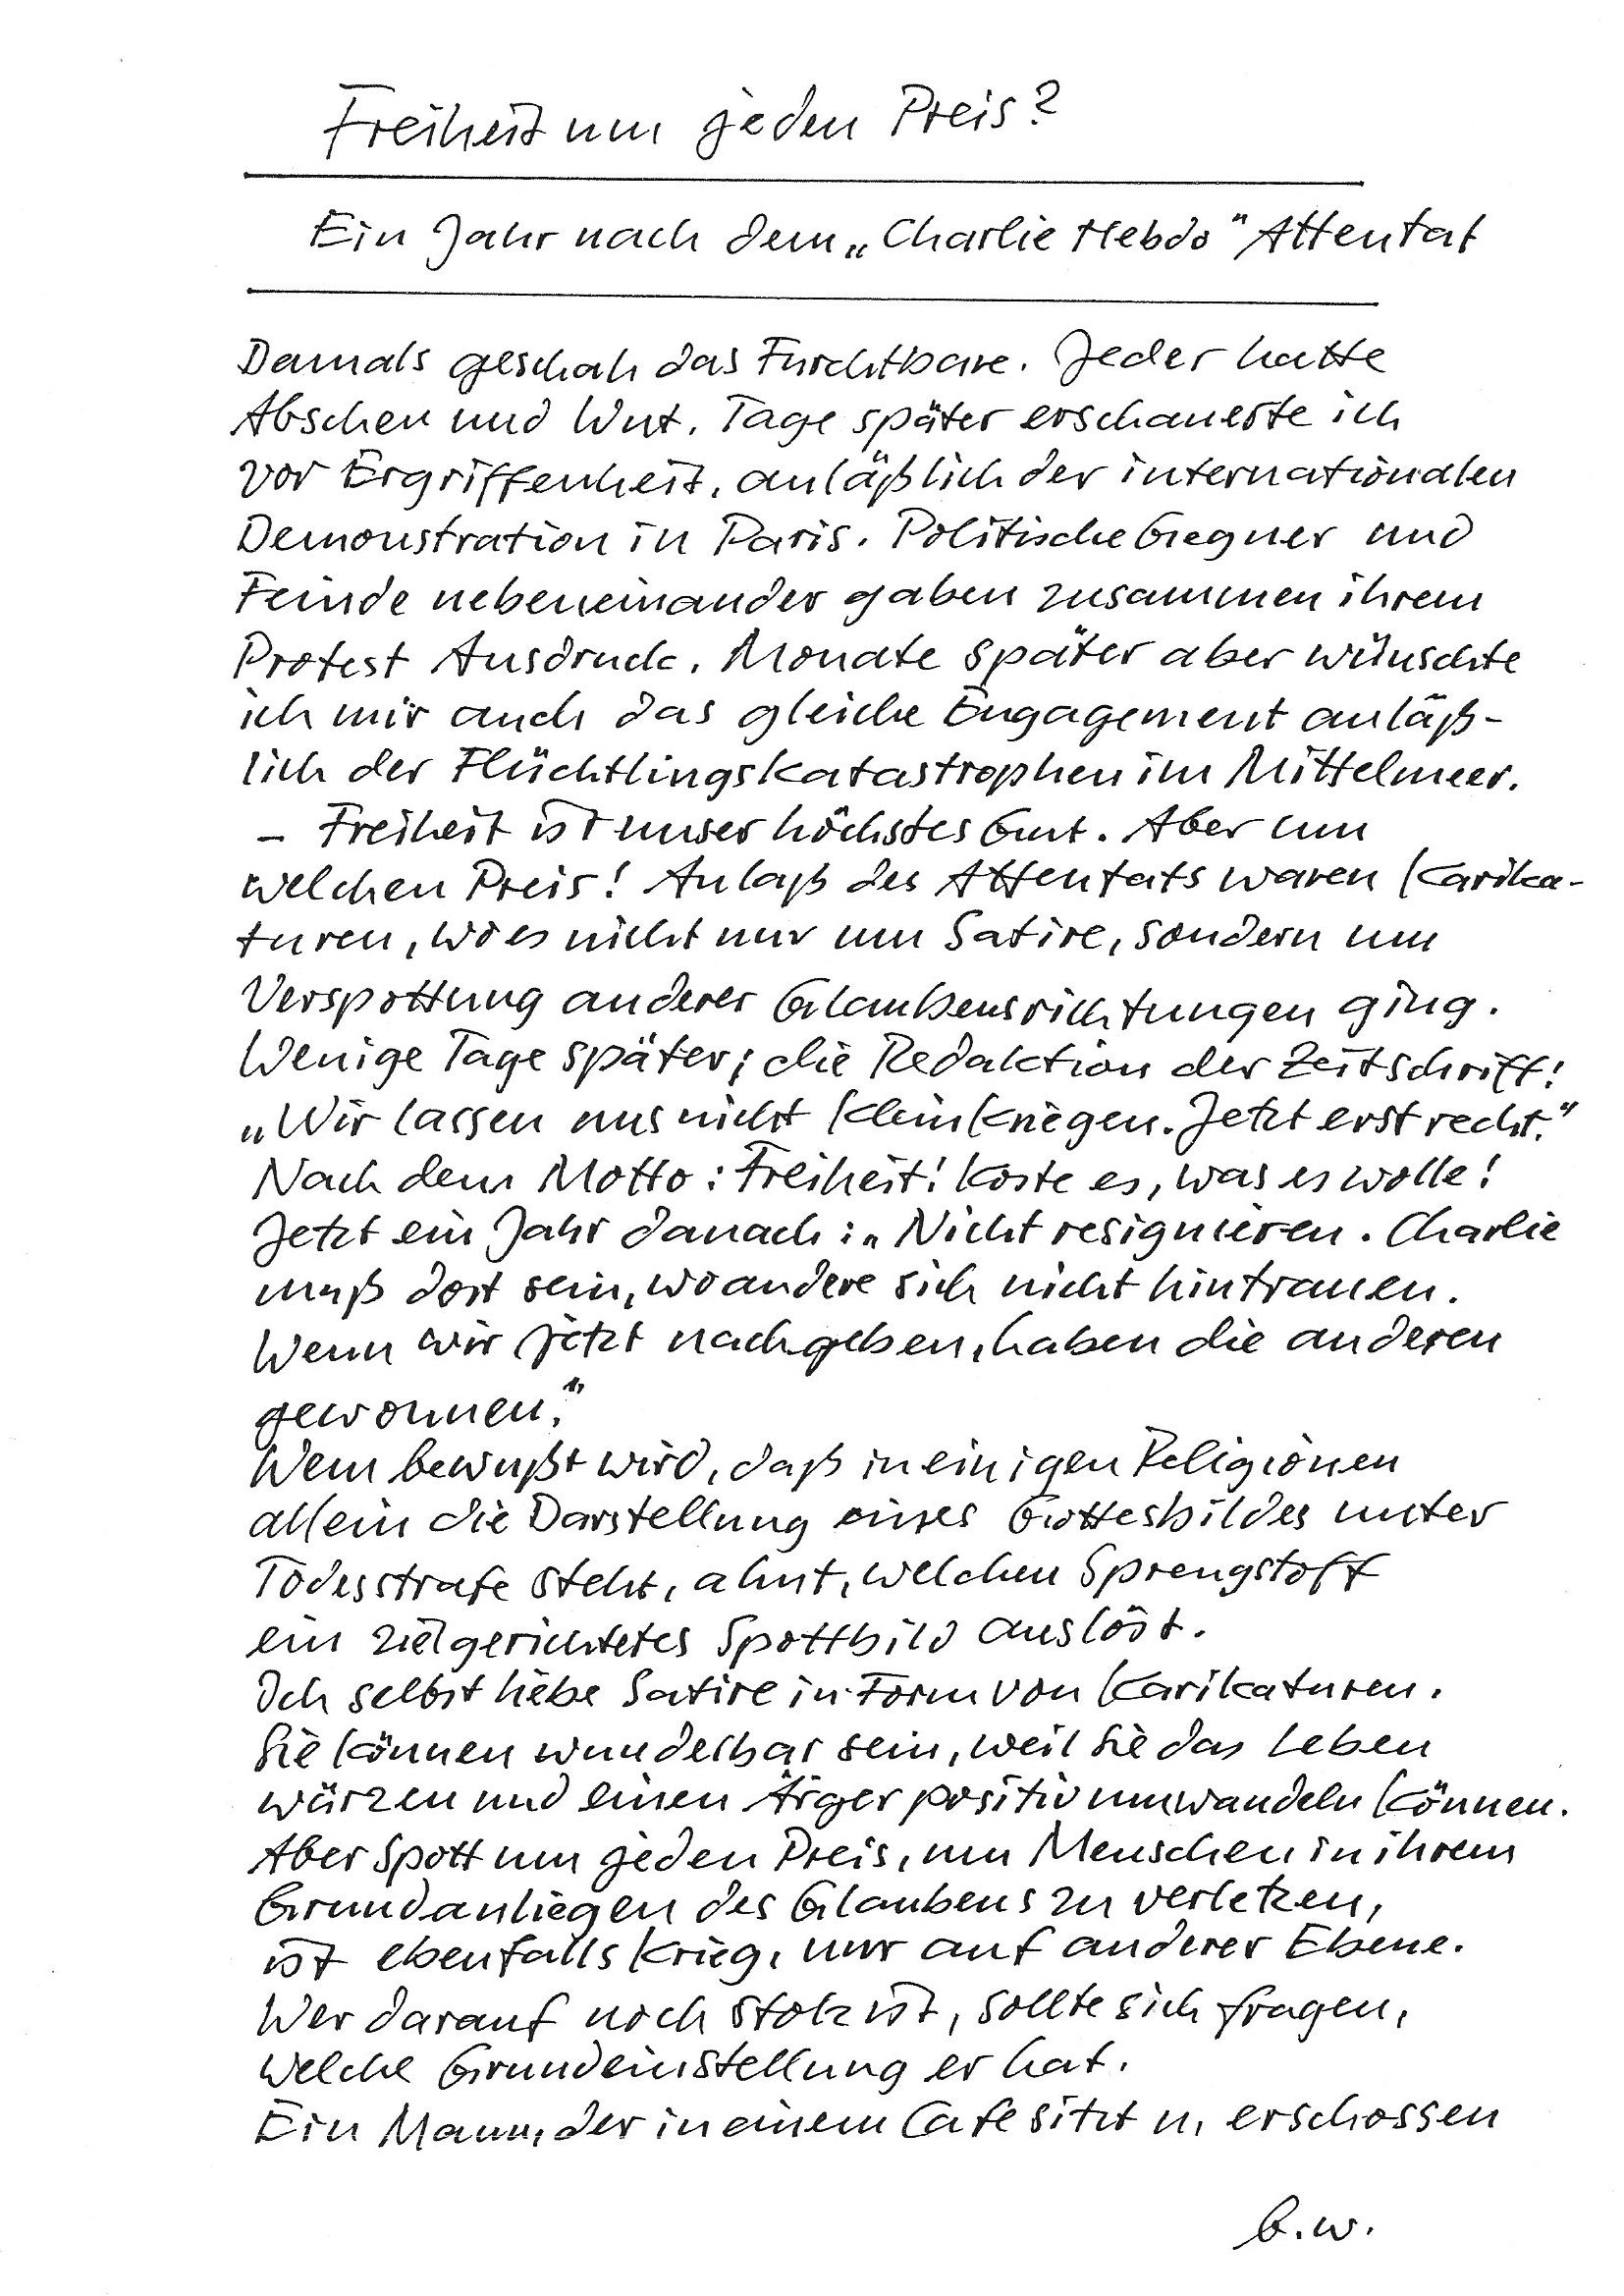 Freiheit um jeden Preis?
Ein Jahr nach dem „Charlie Hebdo" Attentat
Damals geschah das Furchtbare. Jeder hatte
Abscheu und Wut. Tage später erschauerte ich
vor Ergriffenheit, anläßlich der internationalen
Demonstration in Paris. Politische Gegner und
Feinde nebeneinander gaben zusammen ihrem
Protest Ausdruck. Monate später aber wünschte
ich mir auch das gleiche Engagement anläß-
lich der Flüchtlingskatastrophen im Mittelmeer.
– Freiheit ist unser höchstes Gut. Aber um
welchen Preis! Anlaß des Attentats waren Karika-
turen, wo es nicht nur um Satire, sondern um
Verspottung anderer Glaubensrichtungen ging.
Wenige Tage später; die Redaktion der Zeitschrift:
„Wir lassen uns nicht kleinkriegen. Jetzt erst recht."
Nach dem Motto: Freiheit! Koste es, was es wolle!
Jetzt ein Jahr danach: „Nicht resignieren. Charlie
muß dort sein, wo andere sich nicht hintrauen.
Wenn wir jetzt nachgeben, haben die anderen
gewonnen."
Wem bewußt wird, daß in einigen Religionen
allein die Darstellung eines Gottesbildes unter
Todesstrafe steht, ahnt, welchen Sprengstoff
ein zielgerichtetes Spottbild auslöst.
Ich selbst liebe Satire in Form von Karikaturen.
Sie können wunderbar sein, weil sie das Leben
würzen und einen Ärger positiv umwandeln können.
Aber Spott um jeden Preis, um Menschen in ihrem
Grundanliegen des Glaubens zu verletzen,
ist ebenfalls Krieg, nur auf anderer Ebene.
Wer darauf noch stolz ist, sollte sich fragen,
welche Grundeinstellung er hat.
Ein Mann, der in einem Cafe sitzt u. erschossen
b.w.